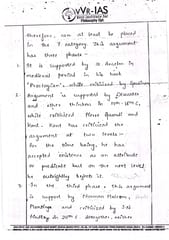 VVR-IAS
therefore, can at least be placed
in the P category This argument
has three phases -
1. It is supported by St Anselm in
medieval period in his book
"Proslogium". while criticised by Gaunilon
2. Argument is supported by Descartes
and other thinkers in 17th-18th C,
while criticised those Gaundi and
Kant. Kant has criticised the
argument at two levels -
for the time being, he has
accepted existence as an attribute
or predicate but on the next level
he outrightly rejects it.
3. In the third phase, this argument
is support by Norman Malcom,
Plantinga and criticised by J.N
Findlay in 20th C. However, neither